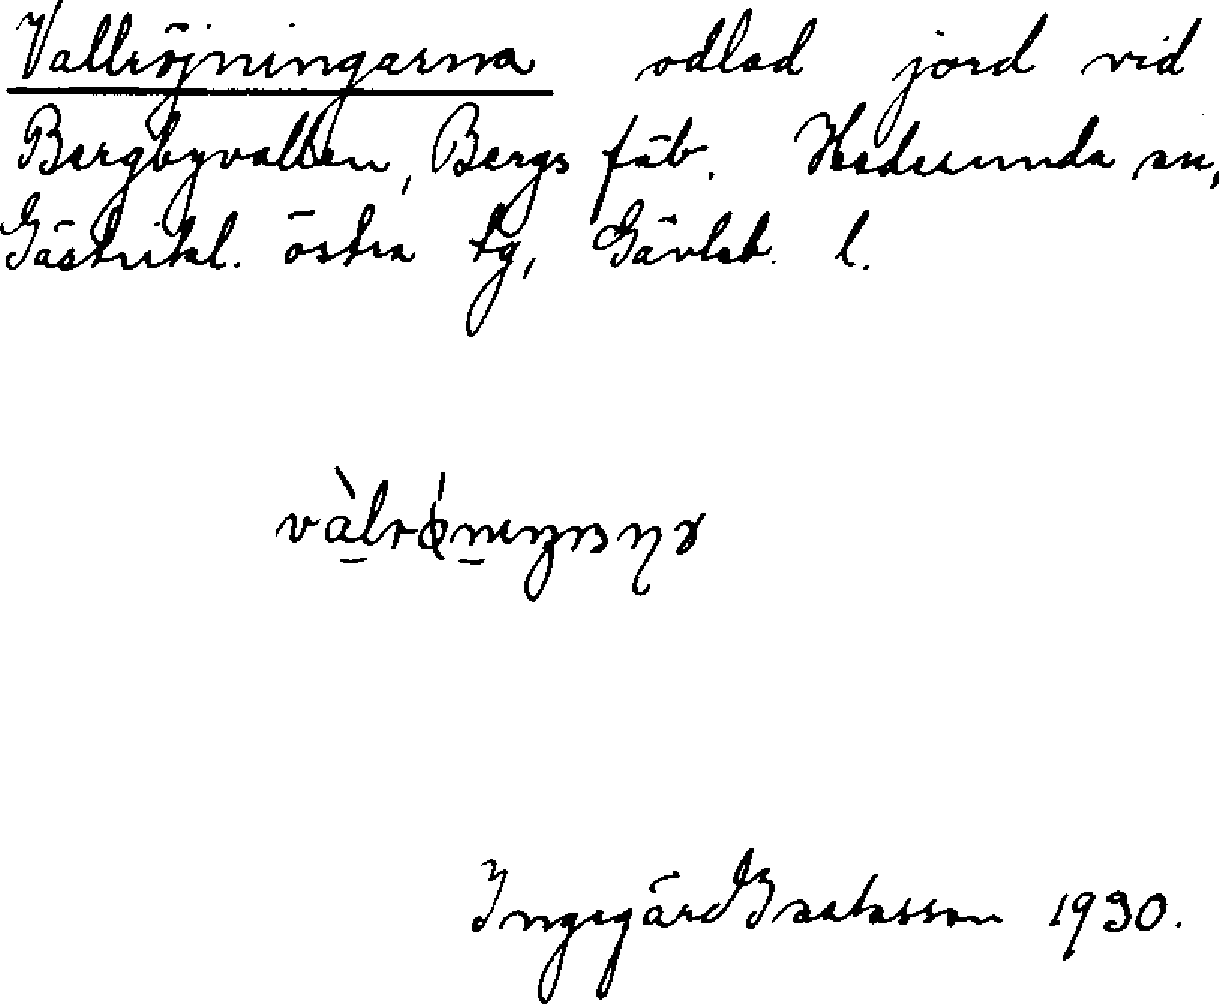 Vallröjningarna odlad jord vid
Bergbyvallen, Bergs fäb. Hedesunda sn,
Gästrikl. östra tg, Gävleb. l.
Ingegärd 1930.